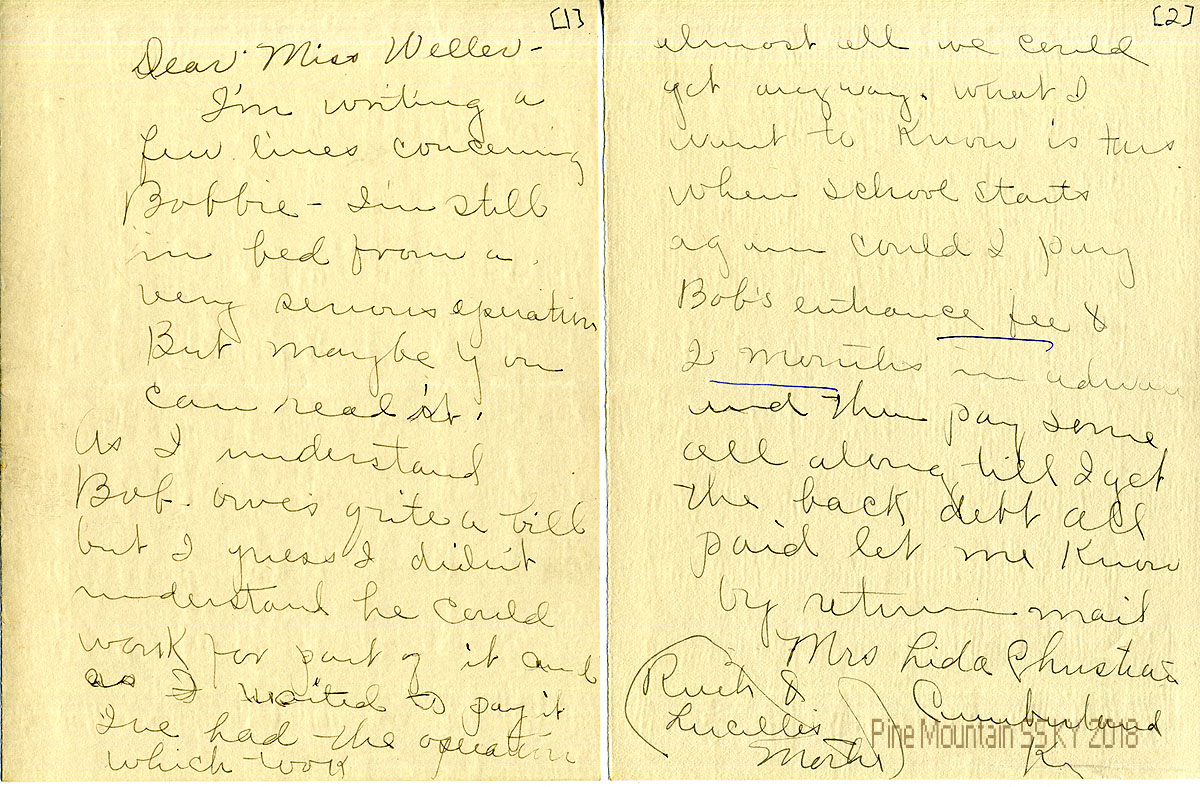 [1]
Dear Miss Weller -
I'm writing a
few lines concerning
Bobbie - I'm still
in bed from a
very serious operation
But maybe you
can read it.
As I understand
Bob owes quite a bill
but I guess I didn't
understand he could
work for part of it and
as I waited to pay it
I've had the operation
which took
[2]
almost all we could
get anyway. What I
want to know is this
when school starts
again could I pay
Bob's entrance fee &
2 months in advance
and then pay some
all along till I get
the back debt all
paid let me know
by return mail
Mrs Lida Christian
Cumberland
Ky
(Ruth &
Lucille's
Mother)
Pine Mountain SS KY 2018